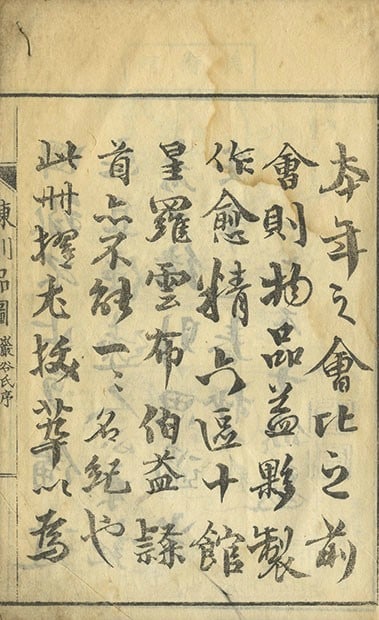 本年之會比之前
會則物品益夥製
作愈精六區十館
星羅雲布伯益隸
首亦不能一〻名紀也
此冊擇尤拔萃以爲
陳列品圖 巖谷氏序